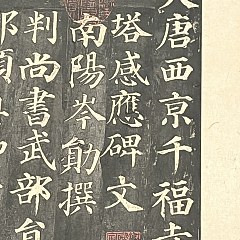 大唐西京千福寺
塔感應碑文
南陽岑勛撰
判尚書武部員